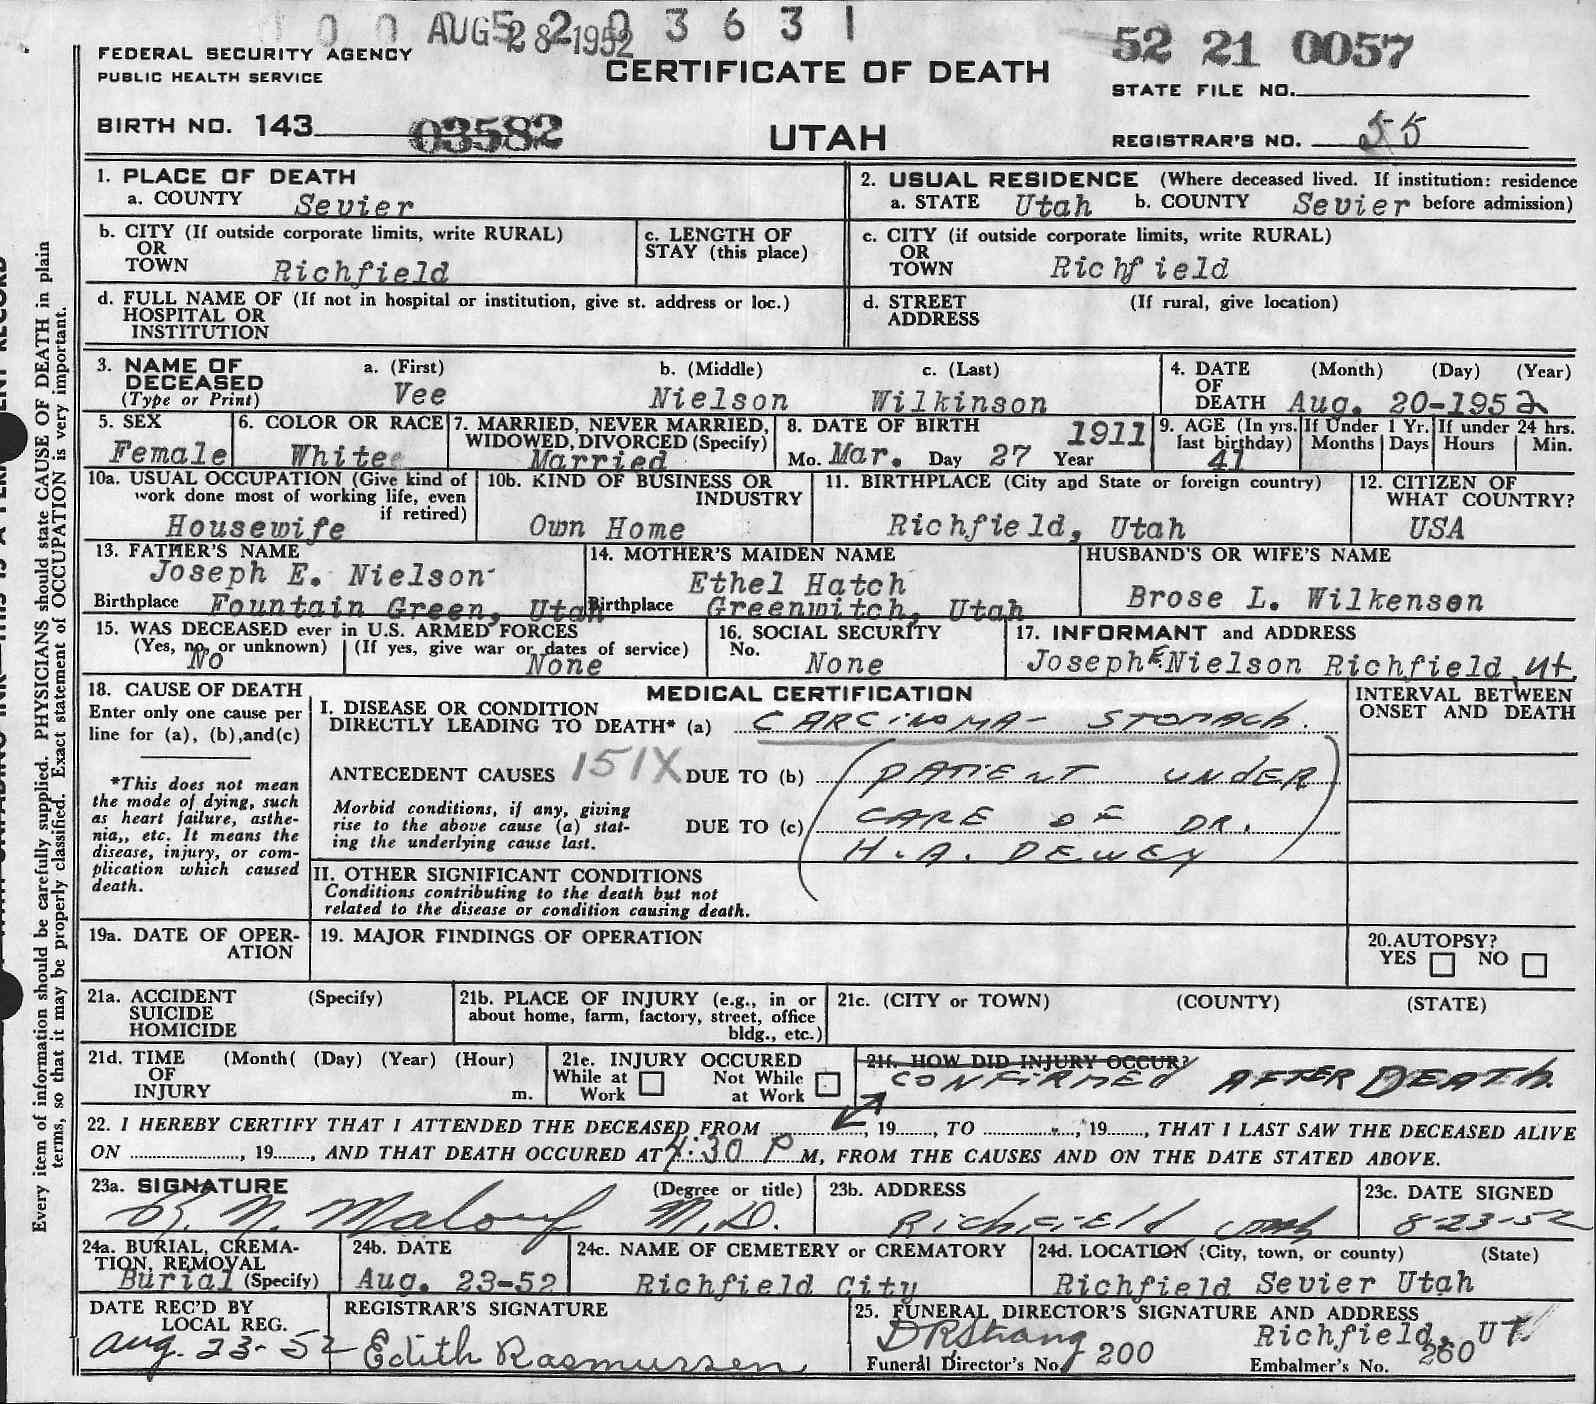 AUG 28 1952 3 6 3 1
52 21 0057
FEDERAL SECURITY AGENCY
PUBLIC HEALTH SERVICE
CERTIFICATE OF DEATH
STATE FILE NO.
BIRTH NO. 143 03582
UTAH
REGISTRAR'S NO. 55
1. PLACE OF DEATH
a. COUNTY Sevier
2. USUAL RESIDENCE (Where deceased lived. If institution: residence
a. STATE Utah b. COUNTY Sevier before admission)
b. CITY (If outside corporate limits, write RURAL)
OR
TOWN Richfield
c. LENGTH OF
STAY (this place)
c. CITY (if outside corporate limits, write RURAL)
OR
TOWN Richfield
d. FULL NAME OF (If not in hospital or institution, give st. address or loc.)
HOSPITAL OR
INSTITUTION
d. STREET (If rural, give location)
ADDRESS
3. NAME OF a. (First) b. (Middle) c. (Last)
DECEASED
(Type or Print) Vee Nielson Wilkinson
4. DATE (Month) (Day) (Year)
OF
DEATH Aug. 20-1952
5. SEX
Female
6. COLOR OR RACE
White
7. MARRIED, NEVER MARRIED,
WIDOWED, DIVORCED (Specify)
Married
8. DATE OF BIRTH 1911
Mo. Mar. Day 27 Year
9. AGE (In yrs.
last birthday)
41
If Under 1 Yr.
Months Days
If under 24 hrs.
Hours Min.
10a. USUAL OCCUPATION (Give kind of
work done most of working life, even
if retired)
Housewife
10b. KIND OF BUSINESS OR
INDUSTRY
Own Home
11. BIRTHPLACE (City and State or foreign country)
Richfield, Utah
12. CITIZEN OF
WHAT COUNTRY?
USA
13. FATHER'S NAME
Joseph E. Nielson
Birthplace Fountain Green, Utah
14. MOTHER'S MAIDEN NAME
Ethel Hatch
Birthplace Greenwitch, Utah
HUSBAND'S OR WIFE'S NAME
Brose L. Wilkenson
15. WAS DECEASED ever in U.S. ARMED FORCES
(Yes, no, or unknown) (If yes, give war or dates of service)
No None
16. SOCIAL SECURITY
No.
None
17. INFORMANT and ADDRESS
Joseph E Nielson Richfield Ut.
18. CAUSE OF DEATH
Enter only one cause per
line for (a), (b),and(c)
*This does not mean
the mode of dying, such
as heart failure, asthe-
nia,, etc. It means the
disease, injury, or com-
plication which caused
death.
MEDICAL CERTIFICATION
I. DISEASE OR CONDITION
DIRECTLY LEADING TO DEATH* (a) CARCINOMA- STOMACH.
ANTECEDENT CAUSES 151X DUE TO (b) (PATIENT UNDER
Morbid conditions, if any, giving
rise to the above cause (a) stat-
ing the underlying cause last.
DUE TO (c) CARE OF DR.
H.A. DEWEY)
II. OTHER SIGNIFICANT CONDITIONS
Conditions contributing to the death but not
related to the disease or condition causing death.
INTERVAL BETWEEN
ONSET AND DEATH
19a. DATE OF OPER-
ATION
19. MAJOR FINDINGS OF OPERATION
20.AUTOPSY?
YES NO
21a. ACCIDENT (Specify)
SUICIDE
HOMICIDE
21b. PLACE OF INJURY (e.g., in or
about home, farm, factory, street, office
bldg., etc.)
21c. (CITY or TOWN) (COUNTY) (STATE)
21d. TIME (Month( (Day) (Year) (Hour)
OF
INJURY m.
21e. INJURY OCCURED
While at Not While
Work at Work
21f. HOW DID INJURY OCCUR?
CONFIRMED AFTER DEATH.
22. I HEREBY CERTIFY THAT I ATTENDED THE DECEASED FROM , 19 , TO , 19 , THAT I LAST SAW THE DECEASED ALIVE
ON , 19 , AND THAT DEATH OCCURED AT 4:30 P M, FROM THE CAUSES AND ON THE DATE STATED ABOVE.
23a. SIGNATURE (Degree or title)
R. N. Malouf M.D.
23b. ADDRESS
Richfield Utah
23c. DATE SIGNED
8-23-52
24a. BURIAL, CREMA-
TION, REMOVAL
Burial (Specify)
24b. DATE
Aug. 23-52
24c. NAME OF CEMETERY or CREMATORY
Richfield City
24d. LOCATION (City, town, or county) (State)
Richfield Sevier Utah
DATE REC'D BY
LOCAL REG.
Aug. 23-52
REGISTRAR'S SIGNATURE
Edith Rasmussen
25. FUNERAL DIRECTOR'S SIGNATURE AND ADDRESS
DRStrang Richfield, UT.
Funeral Director's No. 200 Embalmer's No. 260
Every item of information should be carefully supplied. PHYSICIANS should state CAUSE OF DEATH in plain
terms, so that it may be properly classified. Exact statement of OCCUPATION is very important.